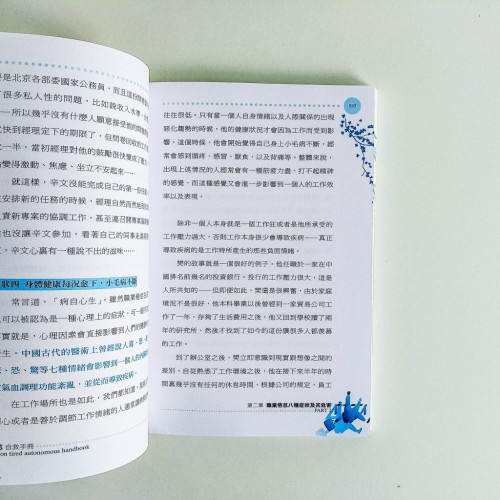 是北京各部委國家公務員，而且這份
很多私人性的問題，比如說收入水準
——所以幾乎沒有什麼人願意接受他的
快到經理定下的期限了，但問卷回收的
一半，當初經理對他的鼓勵很快變成了
變得激動、焦慮、坐立不安起來……
就這樣，辛文沒能完成自己的第一份
安排新的任務的時候，經理自然而然地
責新專案的協調工作，甚至還召開專案
也沒讓辛文參加，看著自己的同事走進
，辛文心裏有一種說不出的滋味……
狀四 身體健康每況愈下，小毛病不斷
常言道，「病自心生」，雖然職業倦怠
可以被認為是一種心理上的症狀，可一
實就是，心理因素會直接影響到人們的
生。中國古代的醫術上曾經說人喜、怒、
恐、驚等七種情緒會影響到一個人的
氣血調理功能紊亂，並從而導致疾病。
在工作場所也是如此，我們都知道，
心或者是善於調節工作情緒的人通常
自救手冊
on tired autonomous handbook
往往很低。只有當一個人自身情緒以及人際關係的出現
惡化趨勢的時候，他的健康狀況才會因為工作而受到影
響，這個時候，他會開始覺得自己身上小毛病不斷，經
常會感到頭疼、感冒、厭食，以及背痛等。整體來說，
出現上述情況的人經常會有一種筋疲力盡、打不起精神
的感覺，而這種感覺又會進一步影響到一個人的工作效
率以及表現。
除非一個人本身就是一個工作狂或者是他所承受的
工作壓力過大，否則工作本身很少會導致疾病——真正
導致疾病的是工作時所產生的那些負面情緒。
樊的故事就是一個很好的例子。他任職於一家在中
國排名前幾名的投資銀行。投行的工作壓力很大，這是
人所共知的——但即便如此，樊還是很興奮，由於家庭
境況不是很好，他本科畢業以後曾經到一家貿易公司工
作了一年，存夠了生活費用之後，他又回到學校讀了兩
年的研究所，然後才找到了如今的這份讓很多人都羨慕
的工作。
到了辦公室之後，樊立即意識到現實跟想像之間的
差別。自從熟悉了工作環境之後，他在接下來半年的時
間裏幾乎沒有任何的休息時間，根據公司的規定，員工
第二章 職業倦怠八種症狀及其危害
PART 2